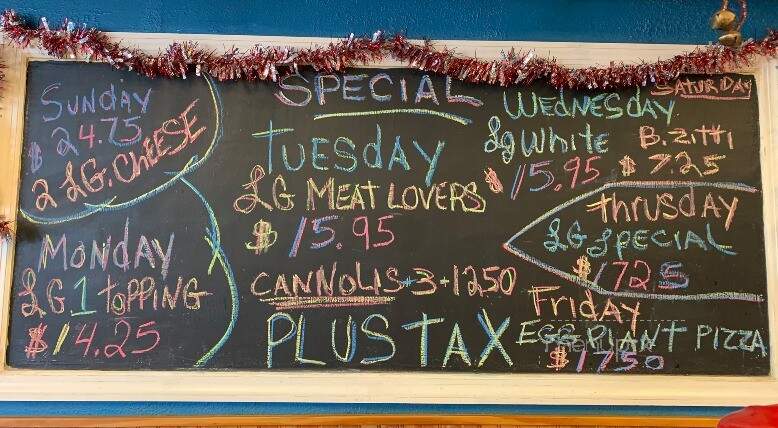 SPECIAL
SUNDAY
$ 24.75
2 LG. CHEESE
MONDAY
LG 1 TOPPING
$ 14.25
TUESDAY
LG MEAT LOVERS
$ 15.95
CANNOLIS + 3 + 1250
PLUS TAX
WEDNESDAY
Lg White
$ 15.95
SATURDAY
B. ZITTI
$ 7.25
thrusday
LG SPECIAL
$ 1725
Friday
EGG PLANT PIZZA
$ 1750